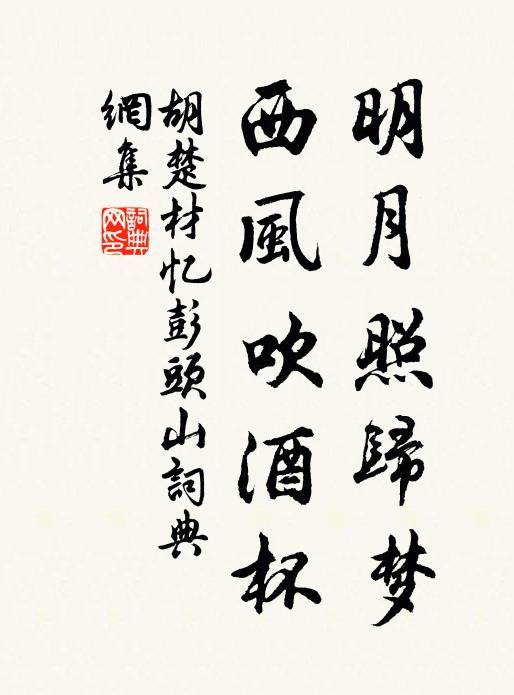 明月照歸梦
西風吹酒杯
胡楚材忆彭頭山詞典
網集
詞典網印